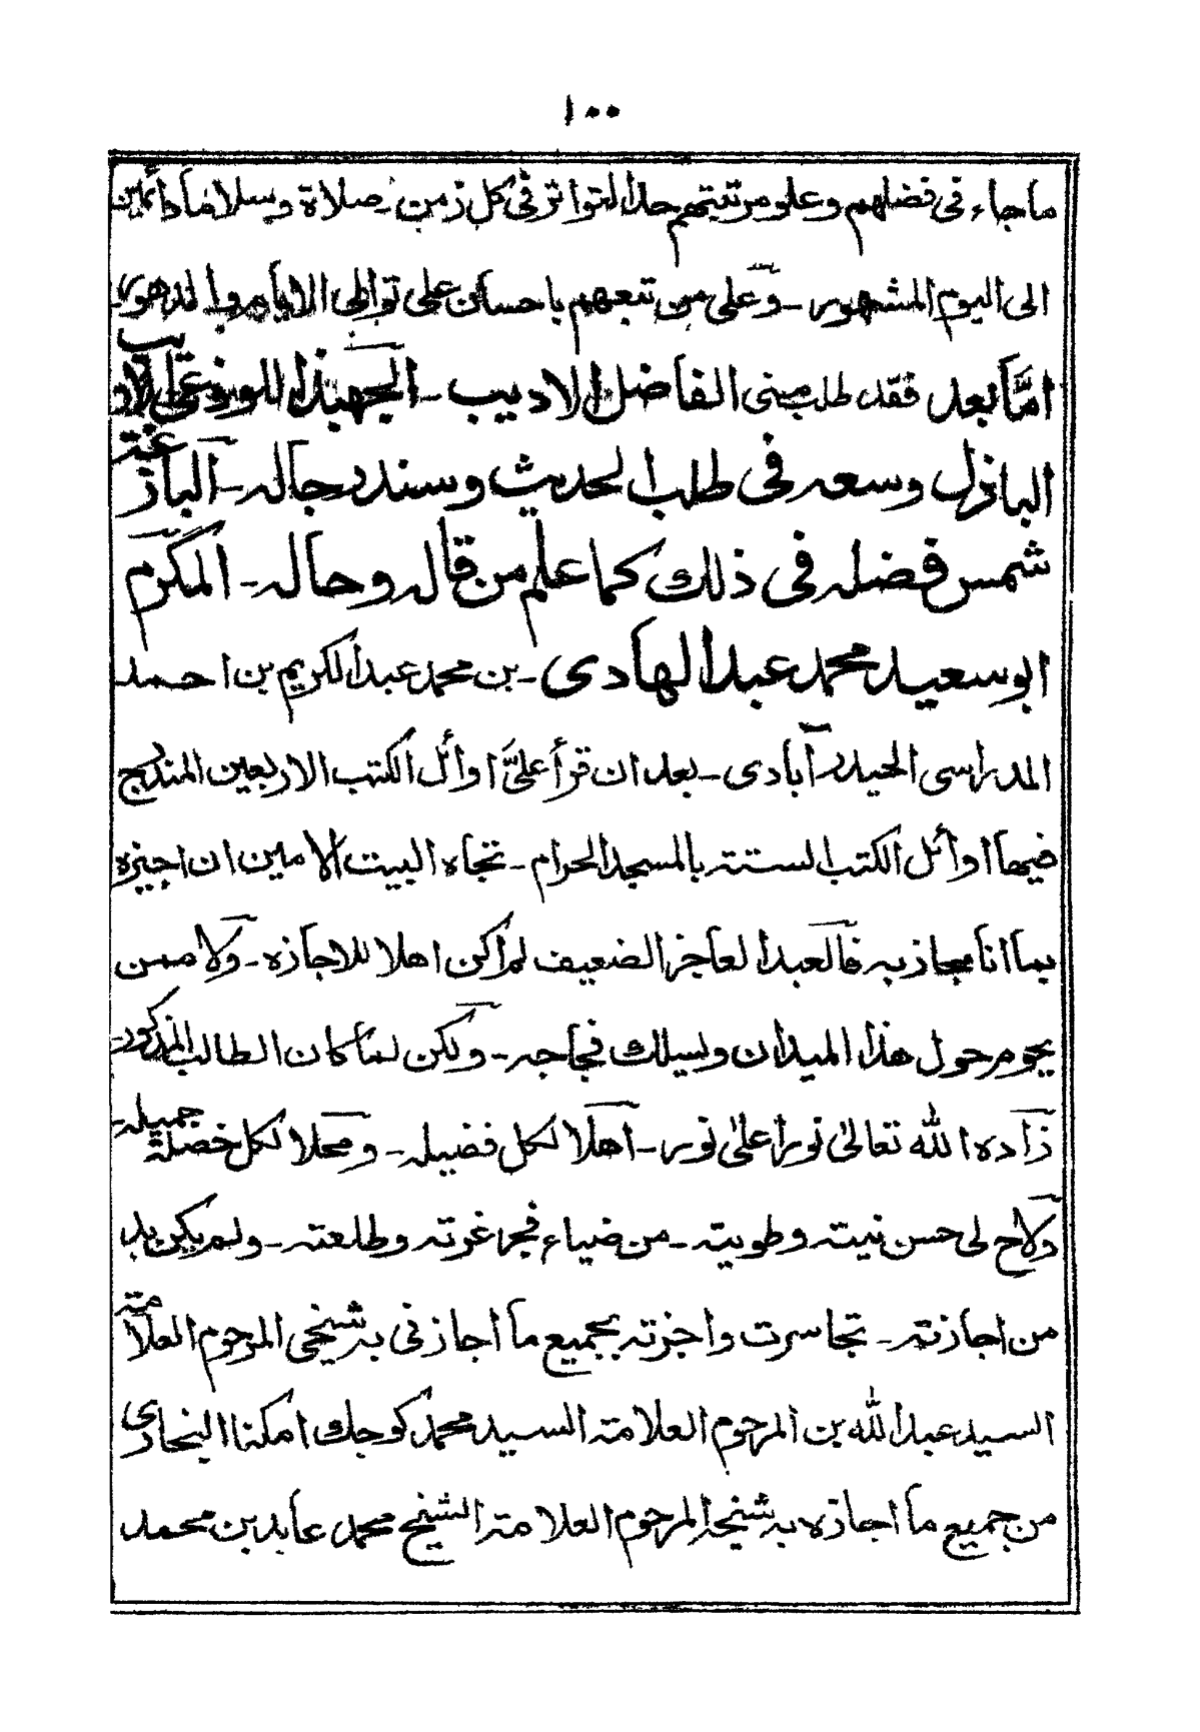 ١٠٠
ما جاء فى فضلهم وعلو مرتبتهم حد التواتر فى كل زمن ـ صلاة وسلاما دائمين
الى اليوم المشهور ـ وعلى من تبعهم باحسان على توالى الايام والدهور
اما بعد فقد طلب منى الفاضل الاديب ـ الجهبذ
الباذل وسعه فى طلب الحديث وسند رجاله ـ البازغة
شمس فضله فى ذلك كما علم من قاله وحاله ـ المكرم
ابو سعيد محمد عبد الهادى ـ بن محمد عبد الكريم بن احمد
المدراسى الحيدرآبادى ـ بعد ان قرأ علىَّ اوائل الكتب الاربعين المندرج
فيها اوائل الكتب الستة بالمسجد الحرام ـ تجاه البيت الامين ان اجيزه
بما انا مجاز به فالعبد العاجز الضعيف لم اكن اهلا للاجازه ـ ولا ممن
يحوم حول هذا الميدان ويسلك فجاجه ـ ولكن لما كان الطالب المذكور ـ
زاده الله تعالى نورا على نور ـ اهلا لكل فضيله ـ ومحلا لكل خصلة جميله ـ
ولاح لى حسن نيته وطويته ـ من ضياء فجر غرته وطلعته ـ ولم يكن بد
من اجازته ـ تجاسرت واجزته بجميع ما اجازنى به شيخى المرحوم العلامة
السيد عبد الله بن المرحوم العلامة السيد محمد كوجك امكنا البخارى
من جميع ما اجازه به شيخه المرحوم العلامة الشيخ محمد عابد بن محمد